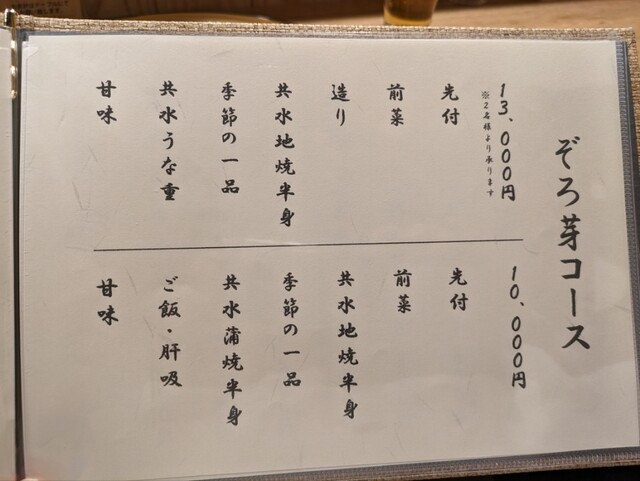 ぞろ芽コース
13、000円
※2名様より承ります
先付
前菜
造り
共水地焼半身
季節の一品
共水うな重
甘味
10、000円
先付
前菜
共水地焼半身
季節の一品
共水蒲焼半身
ご飯・肝吸
甘味